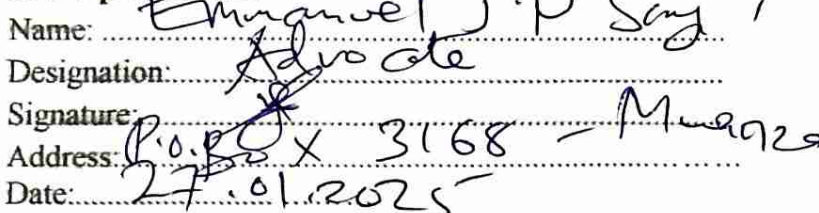 Name: Emmanuel J.P
Designation: Advocate
Signature:
Address: P.O.Box 3168 - Mwanza
Date: 27.01.2025